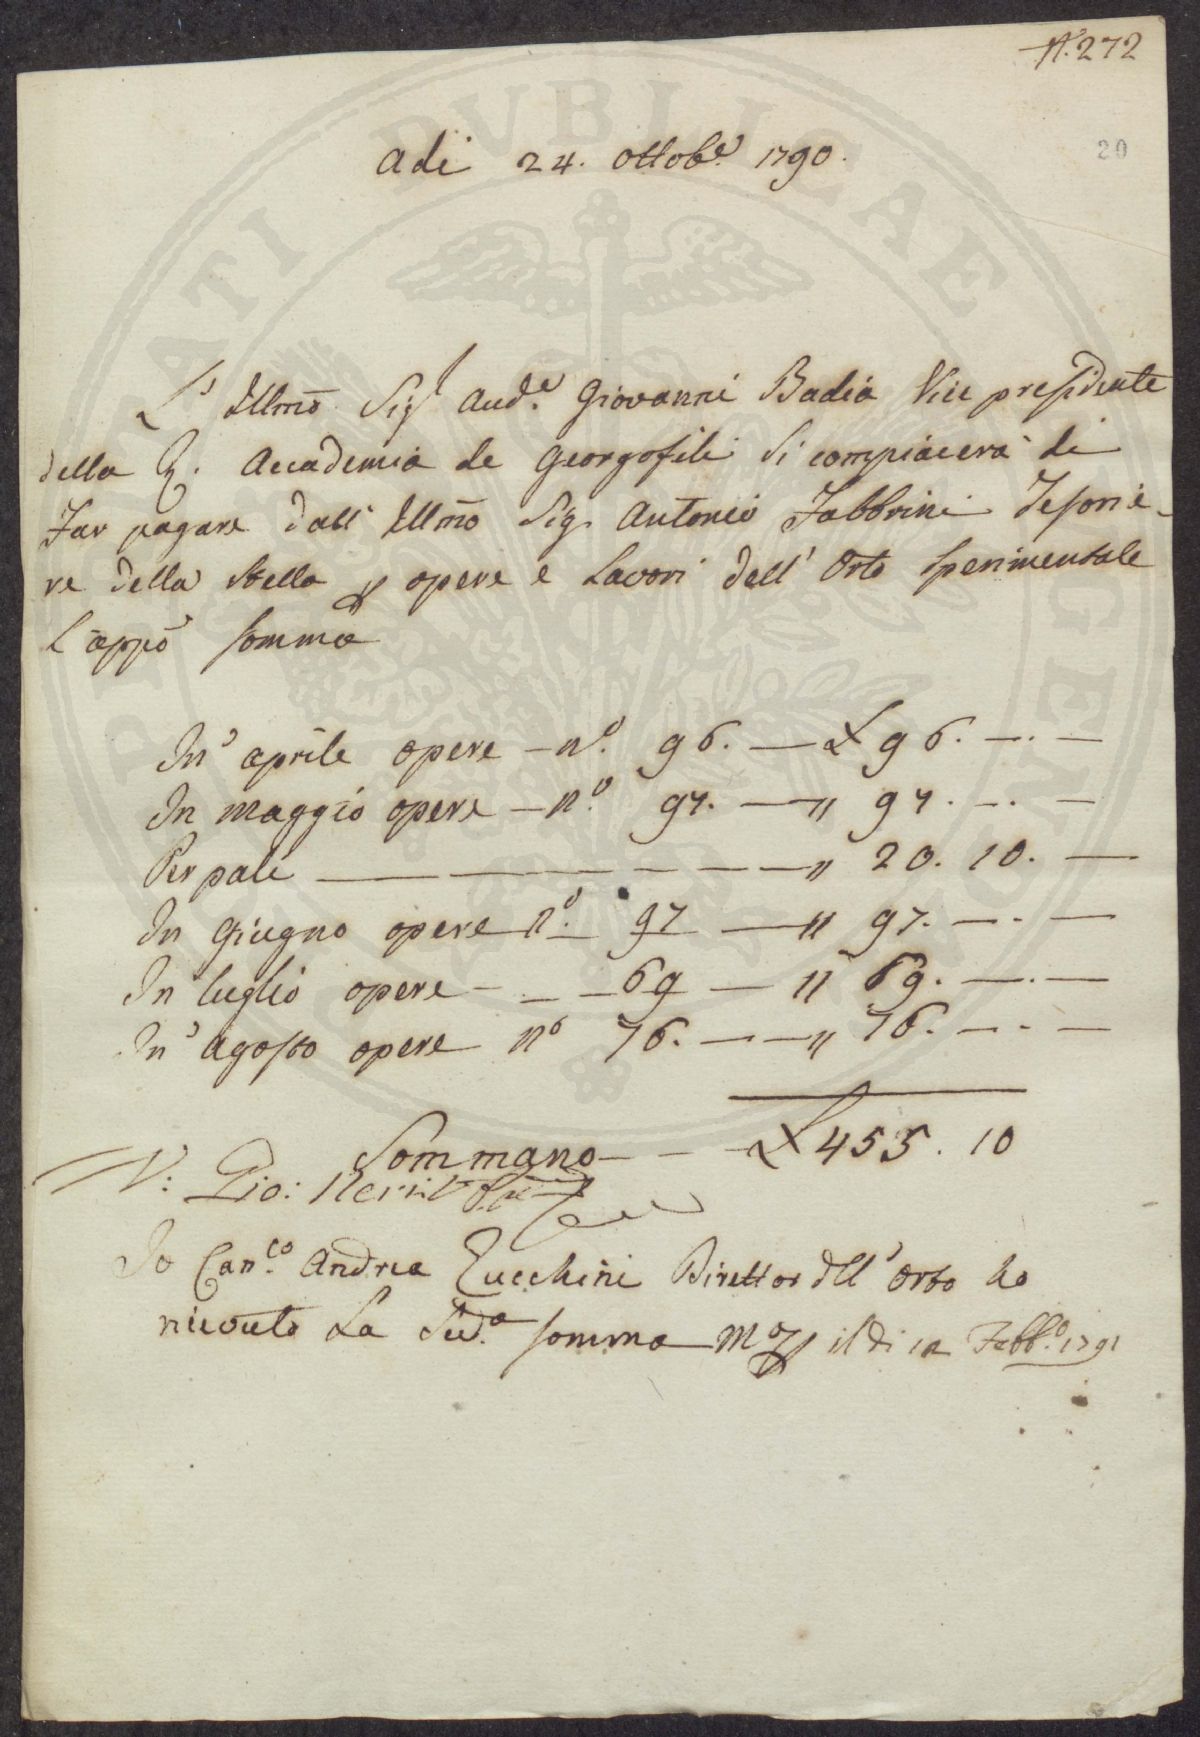 N. 272
20
Adi 24. Ottobe. 1790.
L' Illmo Sigr Aude. Giovanni Badia Vice presidente
della R. Accademia de Georgofili si compiacerà di
Far pagare dall' Illmo Sig. Antonio Fabbrini Tesorie-
re della stella p opere e Lavori dell' Orto sperimentale
L'appo somma
In aprile opere - no. 96. — £ 96. —.—
In maggio opere - no. 97. — " 97. —.—
Per pali — " 20. 10. —
In Giugno opere no. 97 — " 97. —.—
In luglio opere - 69 — " 69. —.—
In Agosto opere no 76. — " 76. —.—
Sommano - - - £ 455. 10
V: Gio:
Io Canco. Andrea Zucchini Direttor dell' Orto ho
ricevuto La Suda. somma il dì 12 Febbo. 1791
PUBLICAE